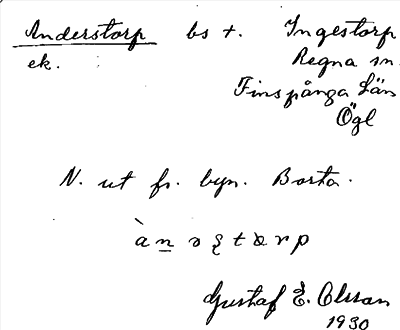 Anderstorp bs t. Ingestorp
ek. Regna sn.
Finspånga Län
Ögl
N. ut fr. byn. Borta.
Gustaf E. Olsson
1930